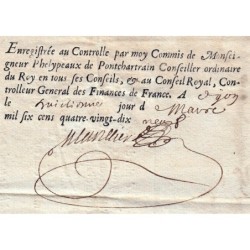 Enregistrée au Controlle par moy Commis de Monsei-
gneur Phelypeaux de Pontchartrain Conseiller ordinaire
du Roy en tous ses Conseils, & au Conseil Royal, Con-
trolleur General des Finances de France. A dijon
le huictiesme jour d Mars
mil six cens quatre-vingt-dix neuf